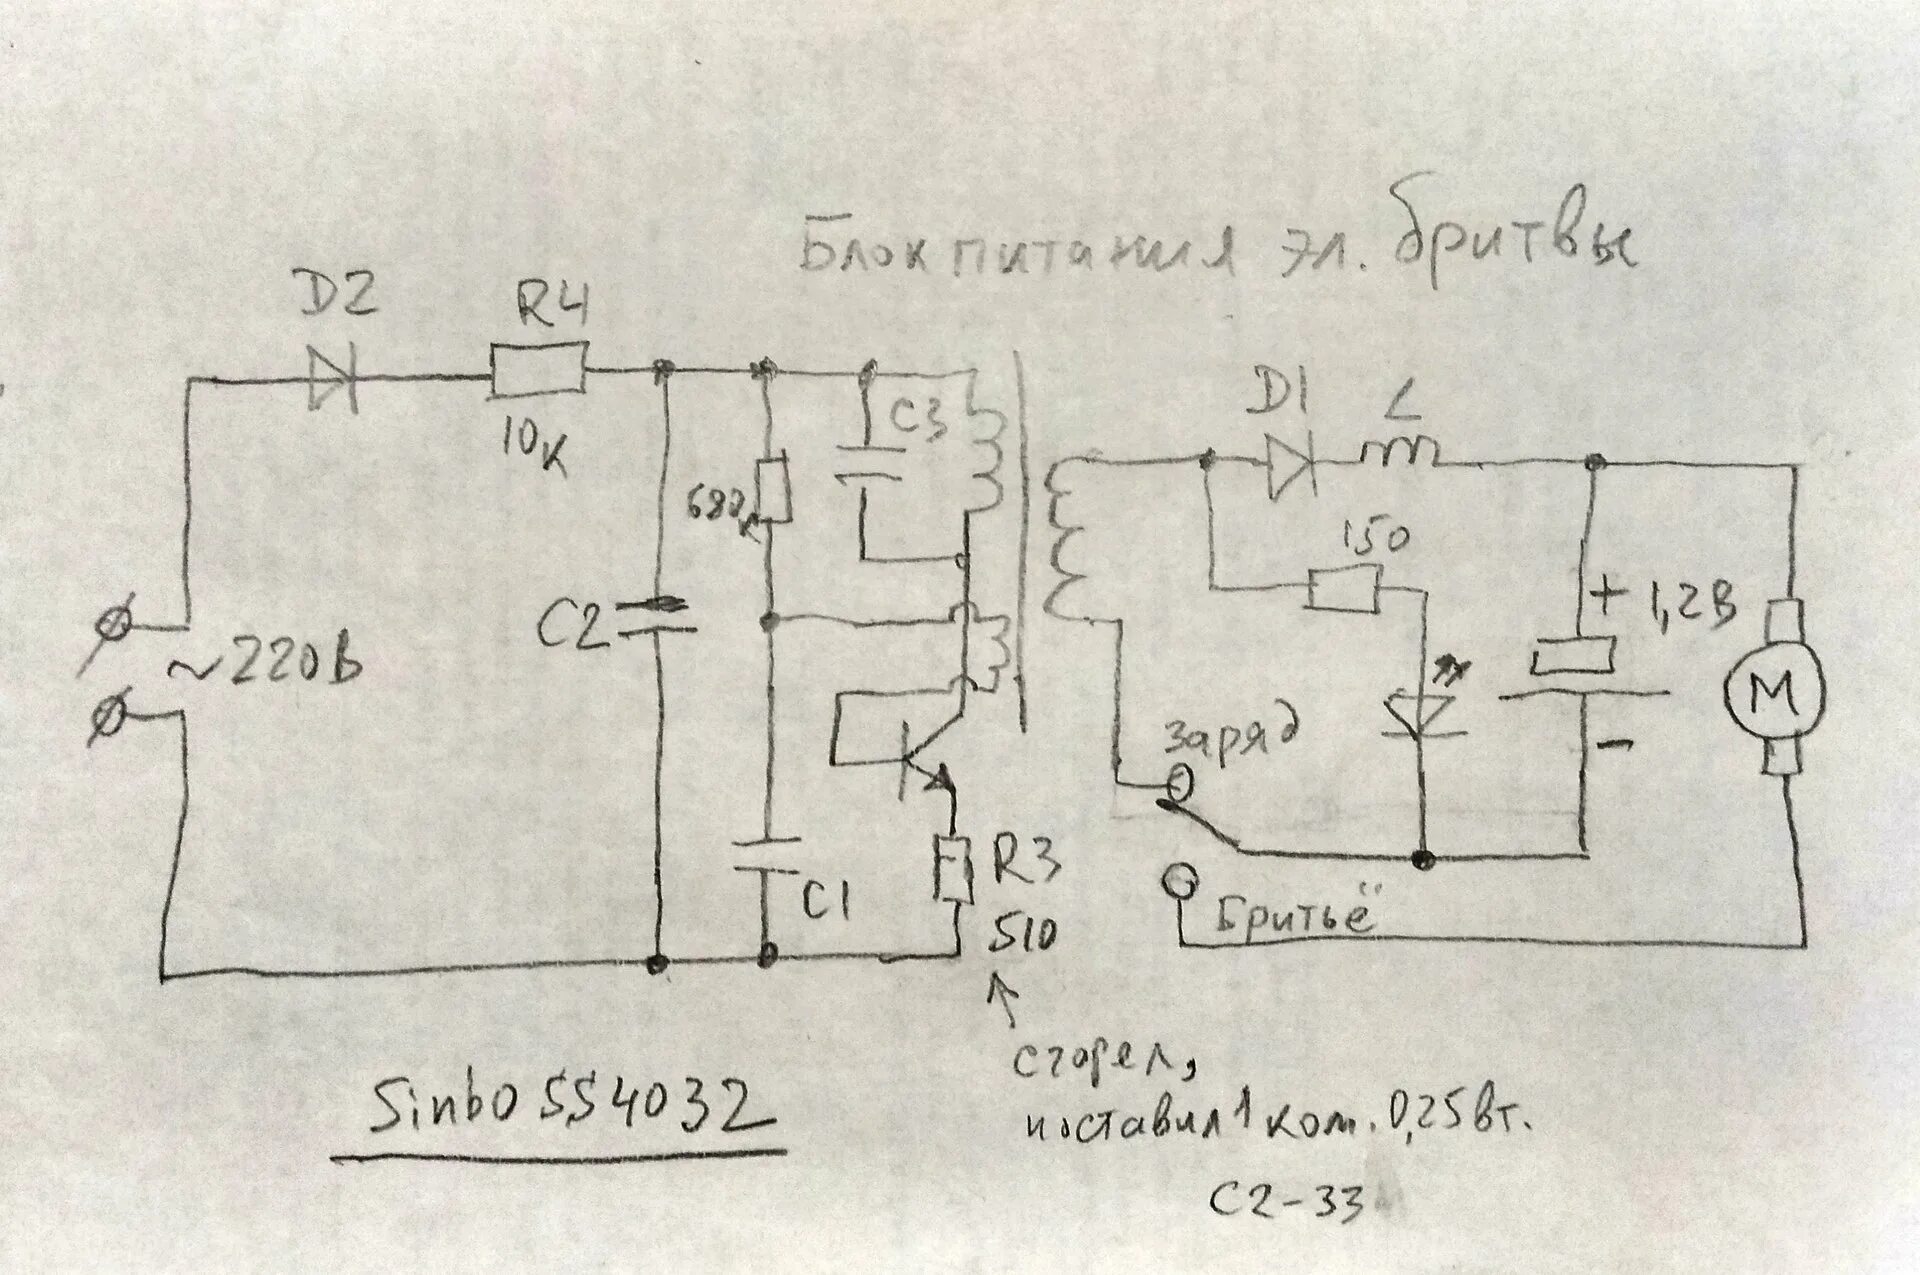 Блок питания эл. бритвы
D2
R4
10к
680к
C3
C2
~220В
C1
R3
510
D1
L
150
+ 1,2В
-
M
заряд
Бритьё
сгорел,
поставил 1 ком. 0,25вт.
С2-33
Sinbo SS4032